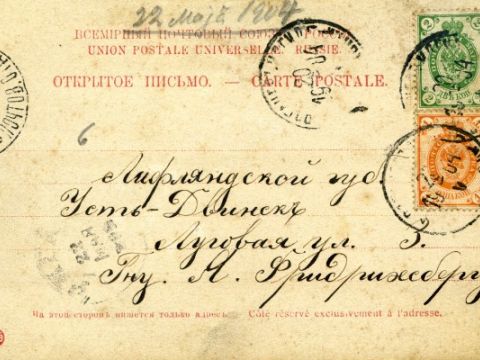 22 мая 1904
ВСЕМІРНЫЙ ПОЧТОВЫЙ СОЮЗЪ. РОССІЯ.
UNION POSTALE UNIVERSELLE. RUSSIE.
ОТКРЫТОЕ ПИСЬМО. — CARTE POSTALE.
6
Лифляндской губ
Усть-Двинскъ
Луговая ул. 3.
Гну. М. Фридрихсбергу
На этой сторонѣ пишется только адресъ. Côté réservé exclusivement à l'adresse.